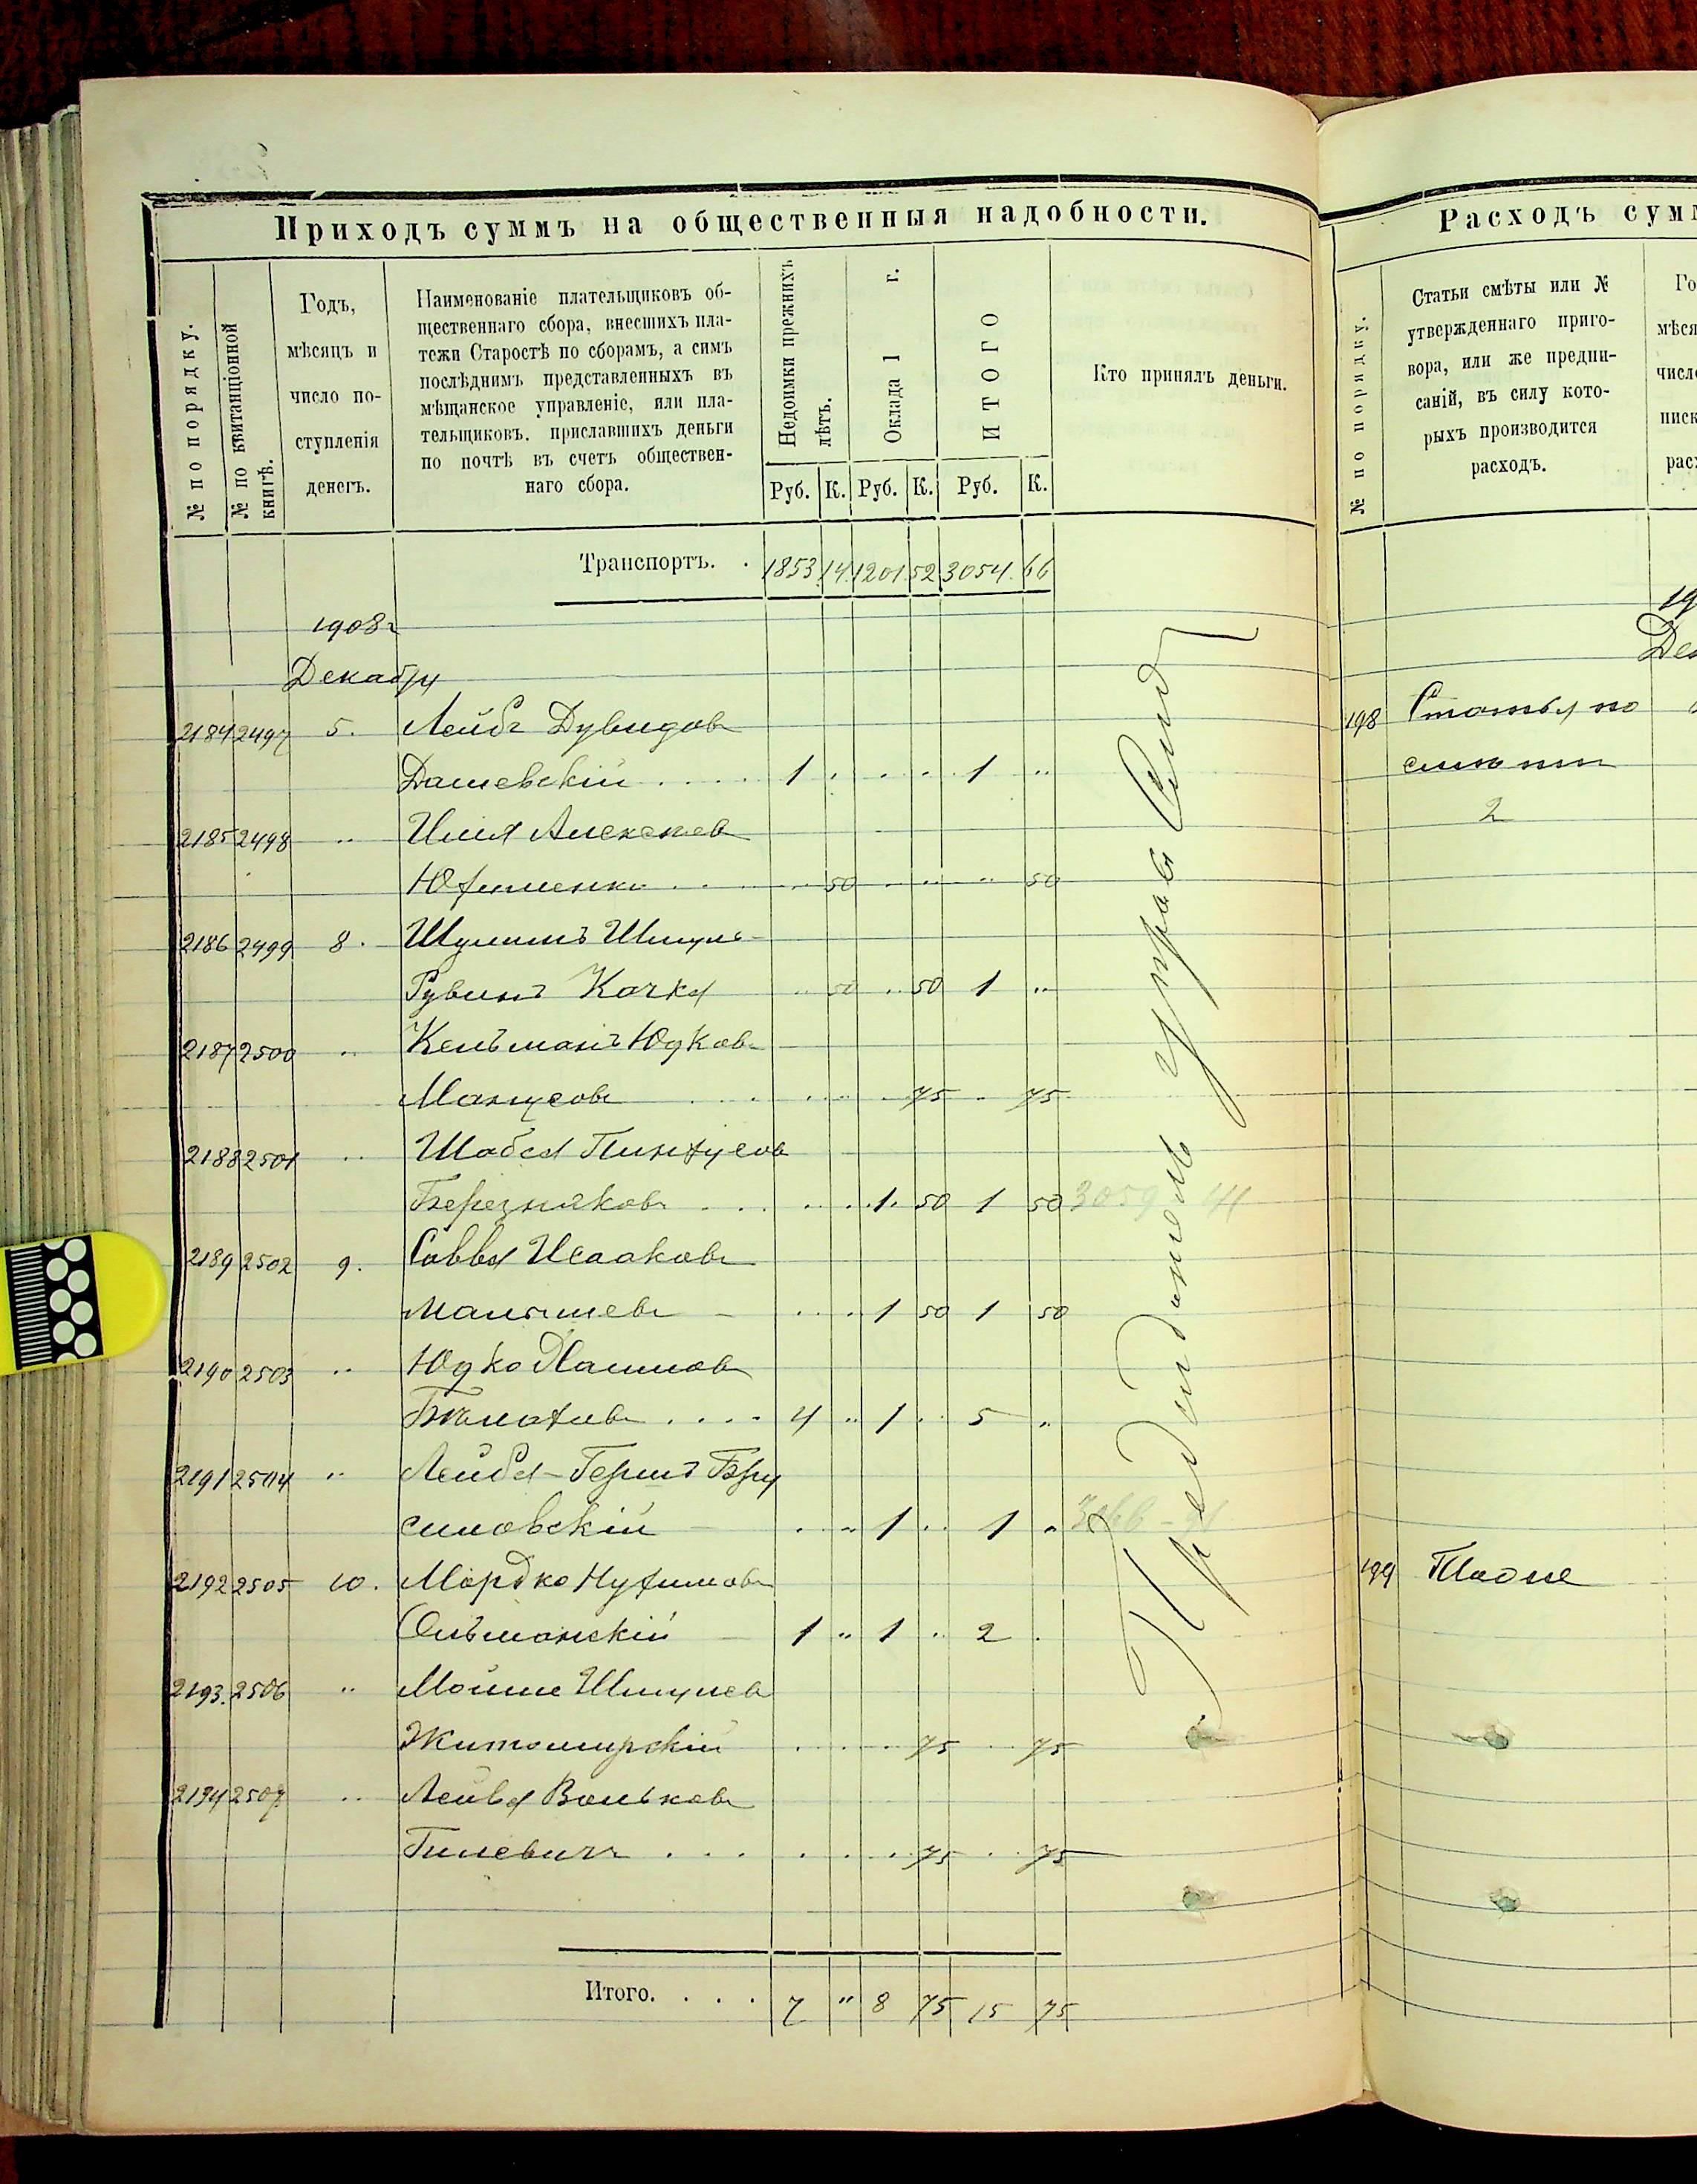 Приходъ суммъ на общественныя надобности.
№ по порядку.
№ по квитанціонной
книгѣ.
Годъ,
мѣсяцъ и
число по-
ступленія
денегъ.
Наименованіе плательщиковъ об-
щественнаго сбора, внесшихъ пла-
тежи Старостѣ по сборамъ, а симъ
послѣднимъ представленныхъ въ
мѣщанское управленіе, или пла-
тельщиковъ, приславшихъ деньги
по почтѣ въ счетъ обществен-
наго сбора.
Недоимки прежнихъ
лѣтъ.
Оклада 1 г.
ИТОГО
Кто принялъ деньги.
Руб. К. Руб. К. Руб. К.
Транспортъ. . 1853 14 1201 52 3054 66
1908г
Декабря
2184 2497 5. Лейбъ Дувидовъ
Дашевскій . . . . . 1 . . . . 1 "
2185 2498 " Илія Алексѣевъ
Юфименко . . . " 50 . . . " 50
2186 2499 8. Шулимъ Шмуль
Рувинъ Качка " 50 " 50 1 "
2187 2500 " Кельманъ Юдковъ
Манусовъ . . . 75 . 75
2188 2501 " Шабса Пинхусовъ
Березняковъ . . . . . . 1 50 1 50 3059 41
2189 2502 9. Савва Исааковъ
Малышевъ - . . . 1 50 1 50
2190 2503 " Юдко Хаимовъ
. . . . 4 " 1 . . 5 "
2191 2504 " Лейба-Гершъ Бру
силовскій - . . " 1 . . 1 "
2192 2505 10. Мордко Нухимовъ
Ольшанскій - 1 " 1 " 2 .
2193. 2506 " Мойше Шмулевъ
Житомирскій . . . . . 75 . . 75
2194 2507. " Лейба Вольковъ
Гилевичъ . . . . . . . 75 . . 75
Итого. . . . 7 " 8 75 15 75
Расходъ сумм
№ по порядку.
Статьи смѣты или №
утвержденнаго приго-
вора, или же предпи-
саній, въ силу кото-
рыхъ производится
расходъ.
Го
мѣся
число
писк
расх
19
Дек
198 Статья по
смѣтѣ
2
199 Тоже